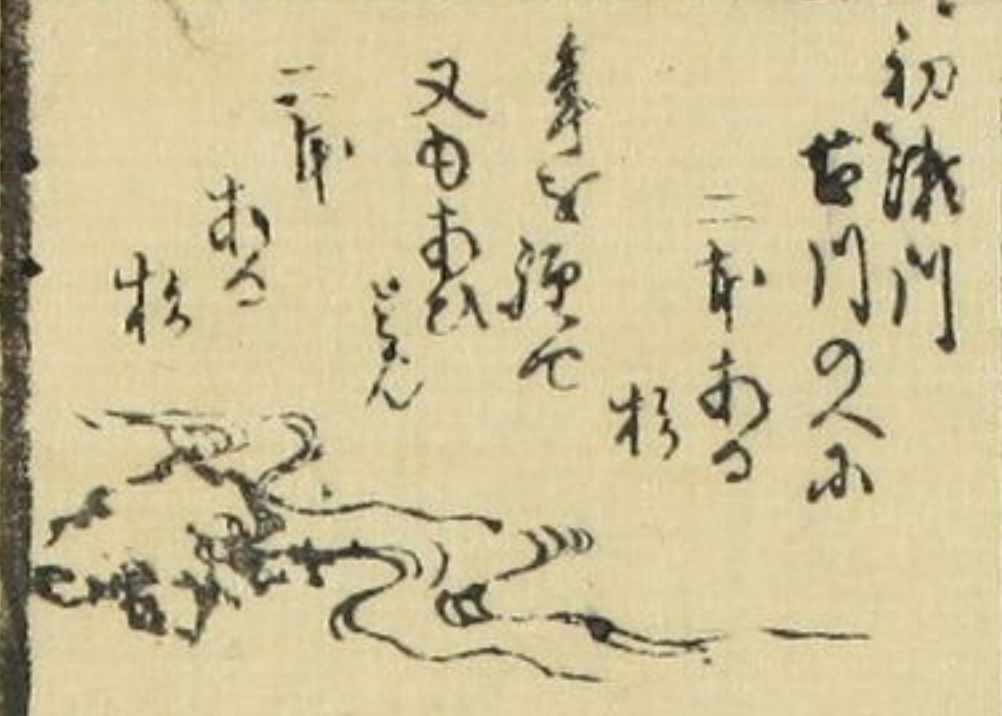 初瀬川
古川のへに
二本ある
杉
年を経て
又もあひ
見ん
二本
ある
杉